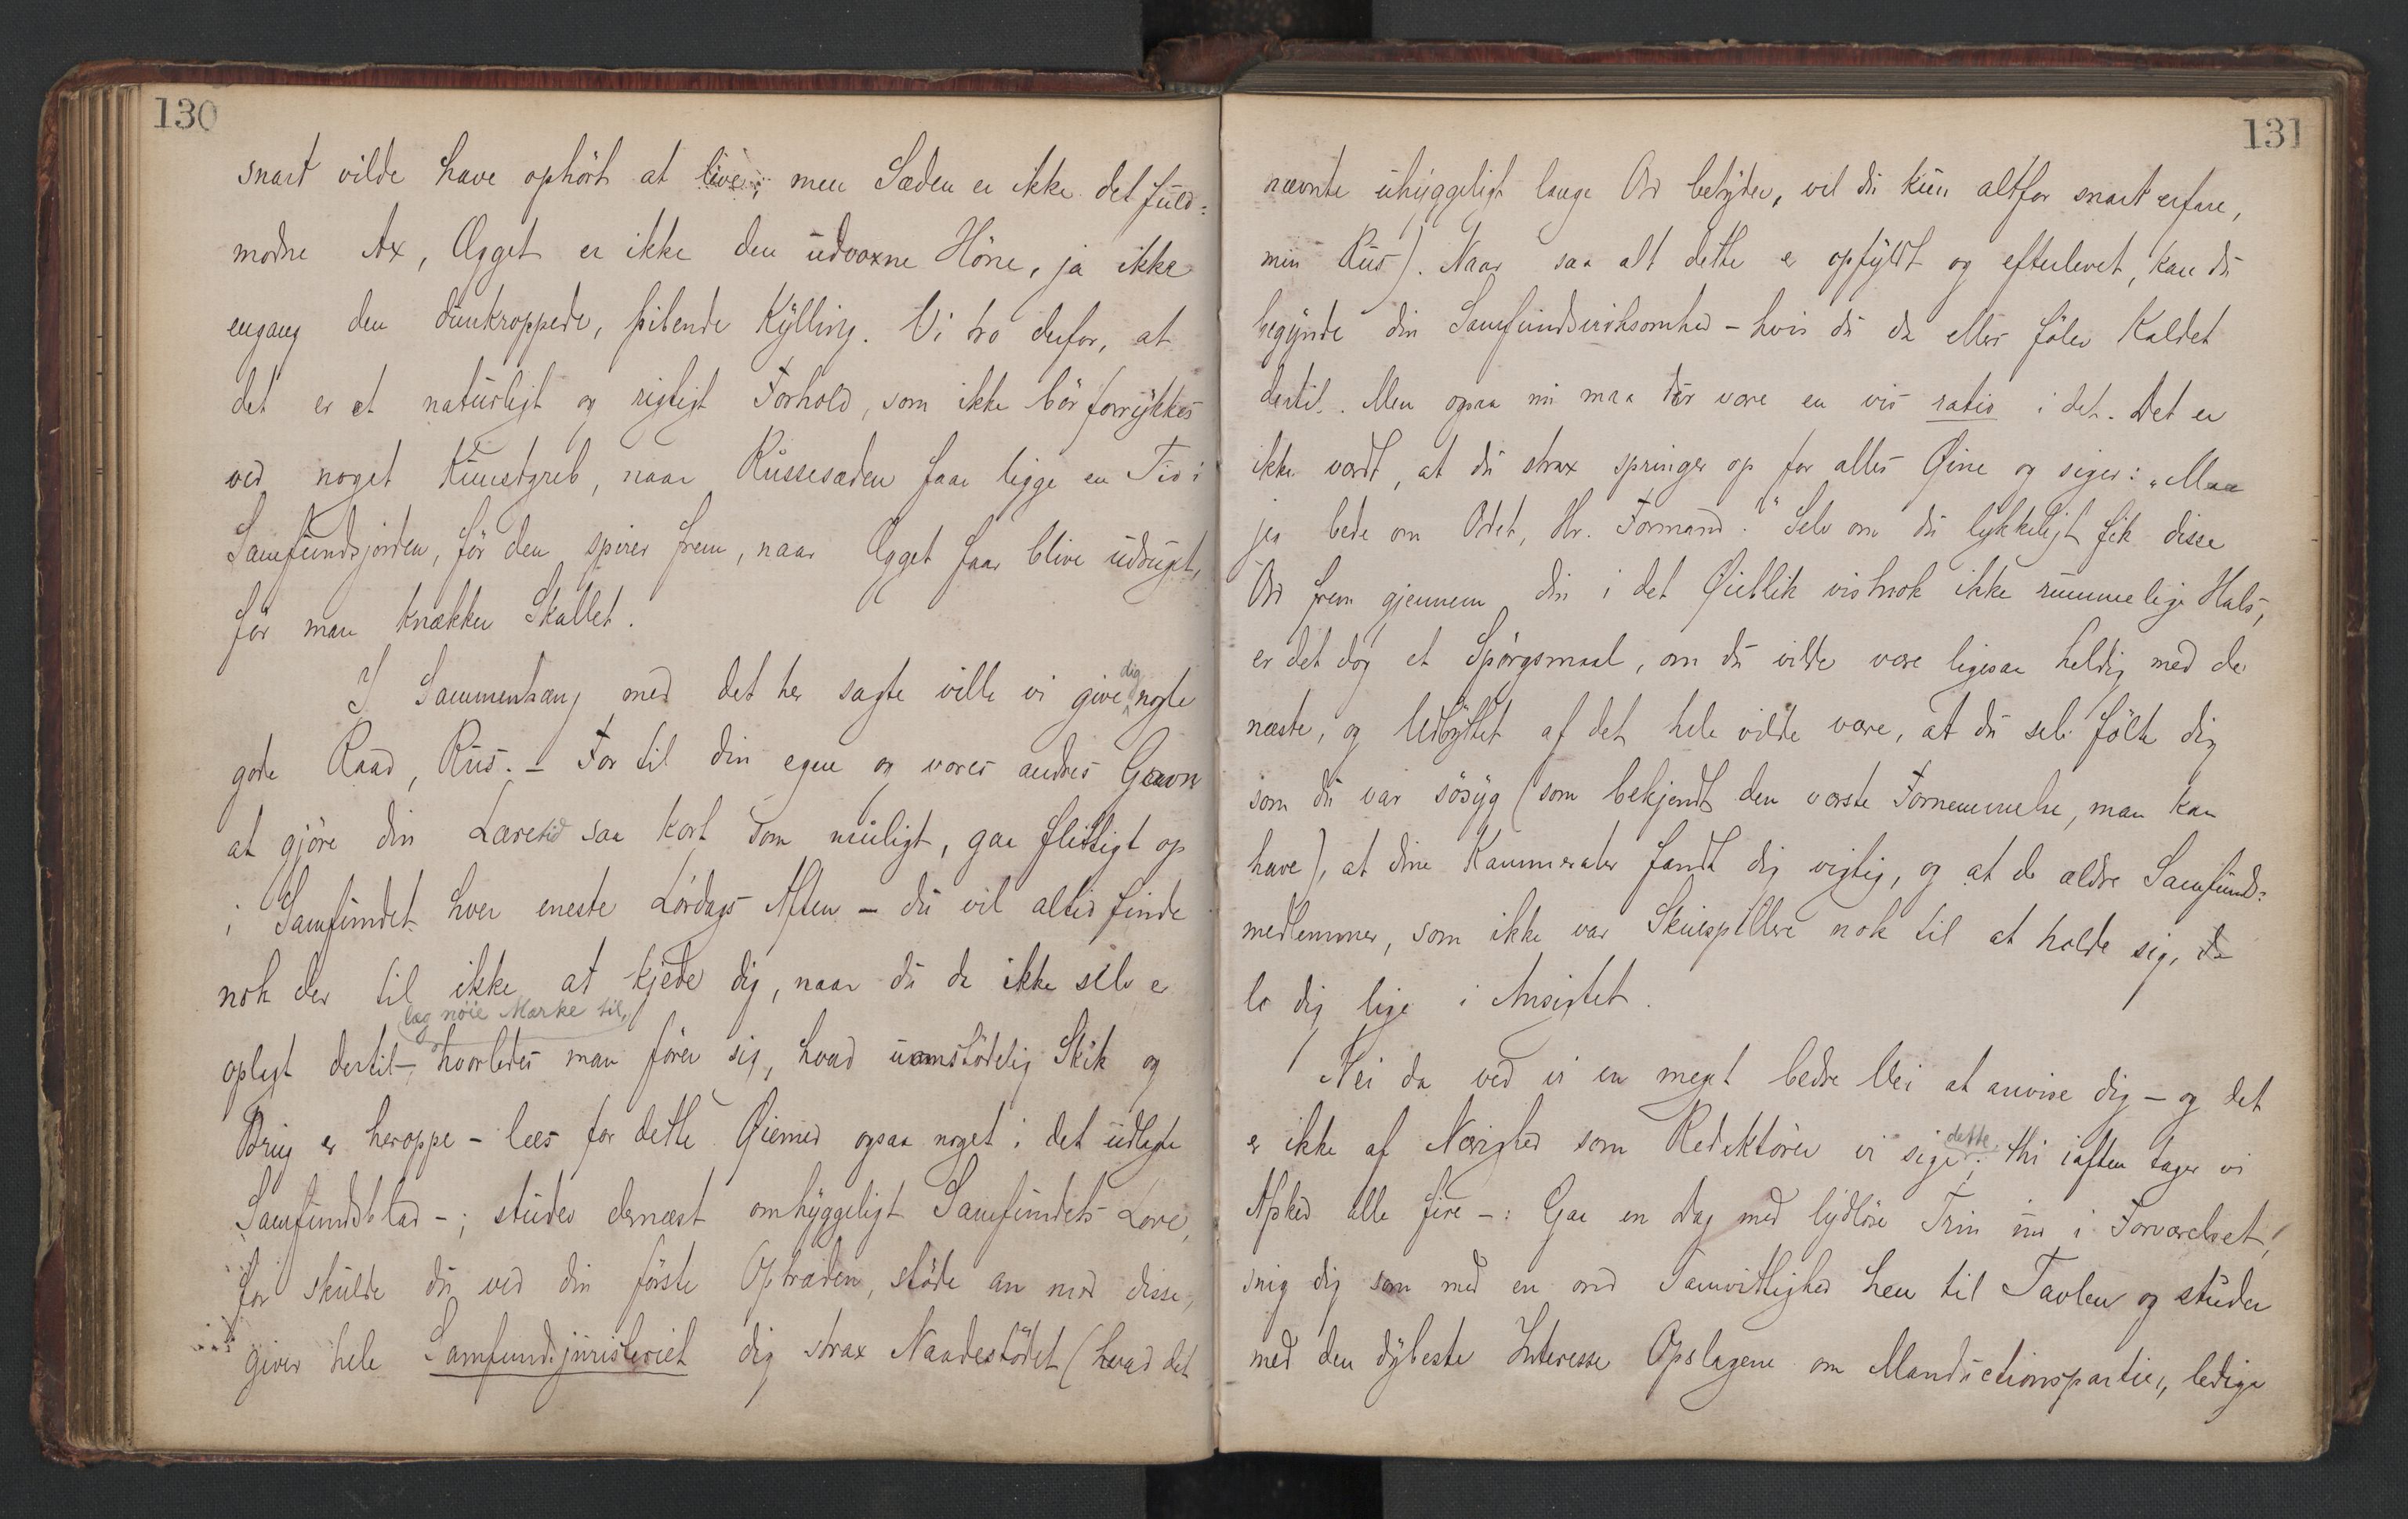 130
snart vilde have ophört at live; men Sæden er ikke det fuld=
modne Ax, Ægget er ikke den udvoxne Höne, ja ikke
engang den dunkroppede, pibende Kylling. Vi tro derfor, at
det er et naturligt og rigtigt Forhold, som ikke bör forrykkes
ved noget Kunstgreb, naar Russesæden faar ligge en Tid i
Samfundsjorden, för den spirer frem, naar Ægget faar blive udruget,
för man knækker Skallet.
I Sammenhæng med det her sagte ville vi give dig nogle
gode Raad, Rus. – For til din egen og vores andres Gavn
at gjöre din Læretid saa kort som muligt, gaa flittigt op
i Samfundet hver eneste Lördags Aften – du vil altid finde
nok der til ikke at kjede dig, naar du da ikke selv er
læg nöie Mærke til,
oplagt dertil –, hvorledes man förer sig, hvad uomstödelig Skik og
Brug er heroppe – læs for dette Öiemed ogsaa noget i det udlagte
Samfundsblad –; studer dernæst omhyggeligt Samfundets Love,
for skulde du ved din förste Optræden, stöde an mod disse,
giver hele Samfundsjuristeriet dig strax Naadestödet (hvad det
131
nævnte uhyggeligt lange Ord betyder, vil du kun altfor snart erfare,
min Rus). Naar saa alt dette er opfyldt og efterlevet, kan du
begynde din Samfundsvirksomhed – hvis du da ellers föler Kaldet
dertil. Men ogsaa nu maa der være en vis ratio i det. Det er
ikke værdt, at du strax springer op for alles Öine og siger: „Maa
jeg bede om Ordet, Hr. Formand." Selv om du lykkeligt fik disse
Ord frem gjennem din i det Öieblik vistnok ikke rummelige Hals,
er det dog et Spörgsmaal, om du vilde være ligesaa heldig med de
næste, og Udbyttet af det hele vilde være, at du selv fölte dig
som du var sösyg (som bekjendt den værste Fornemmelse, man kan
have), at dine Kammerater fandt dig vigtig, og at de ældre Samfunds=
medlemmer, som ikke var Skuespillere nok til at holde sig, da
lo dig lige i Ansigtet.
Nei da ved vi en meget bedre Vei at anvise dig – og det
er ikke af Nævighed som Redaktörer vi sige dette; thi iaften tager vi
Afsked alle fire –: Gaa en Dag med lydlöse Trin ind i Forværelset,
snig dig som med en ond Samvittighed hen til Tavlen og studer
med den dybeste Interesse Opslagene om Manductionspartier, ledige